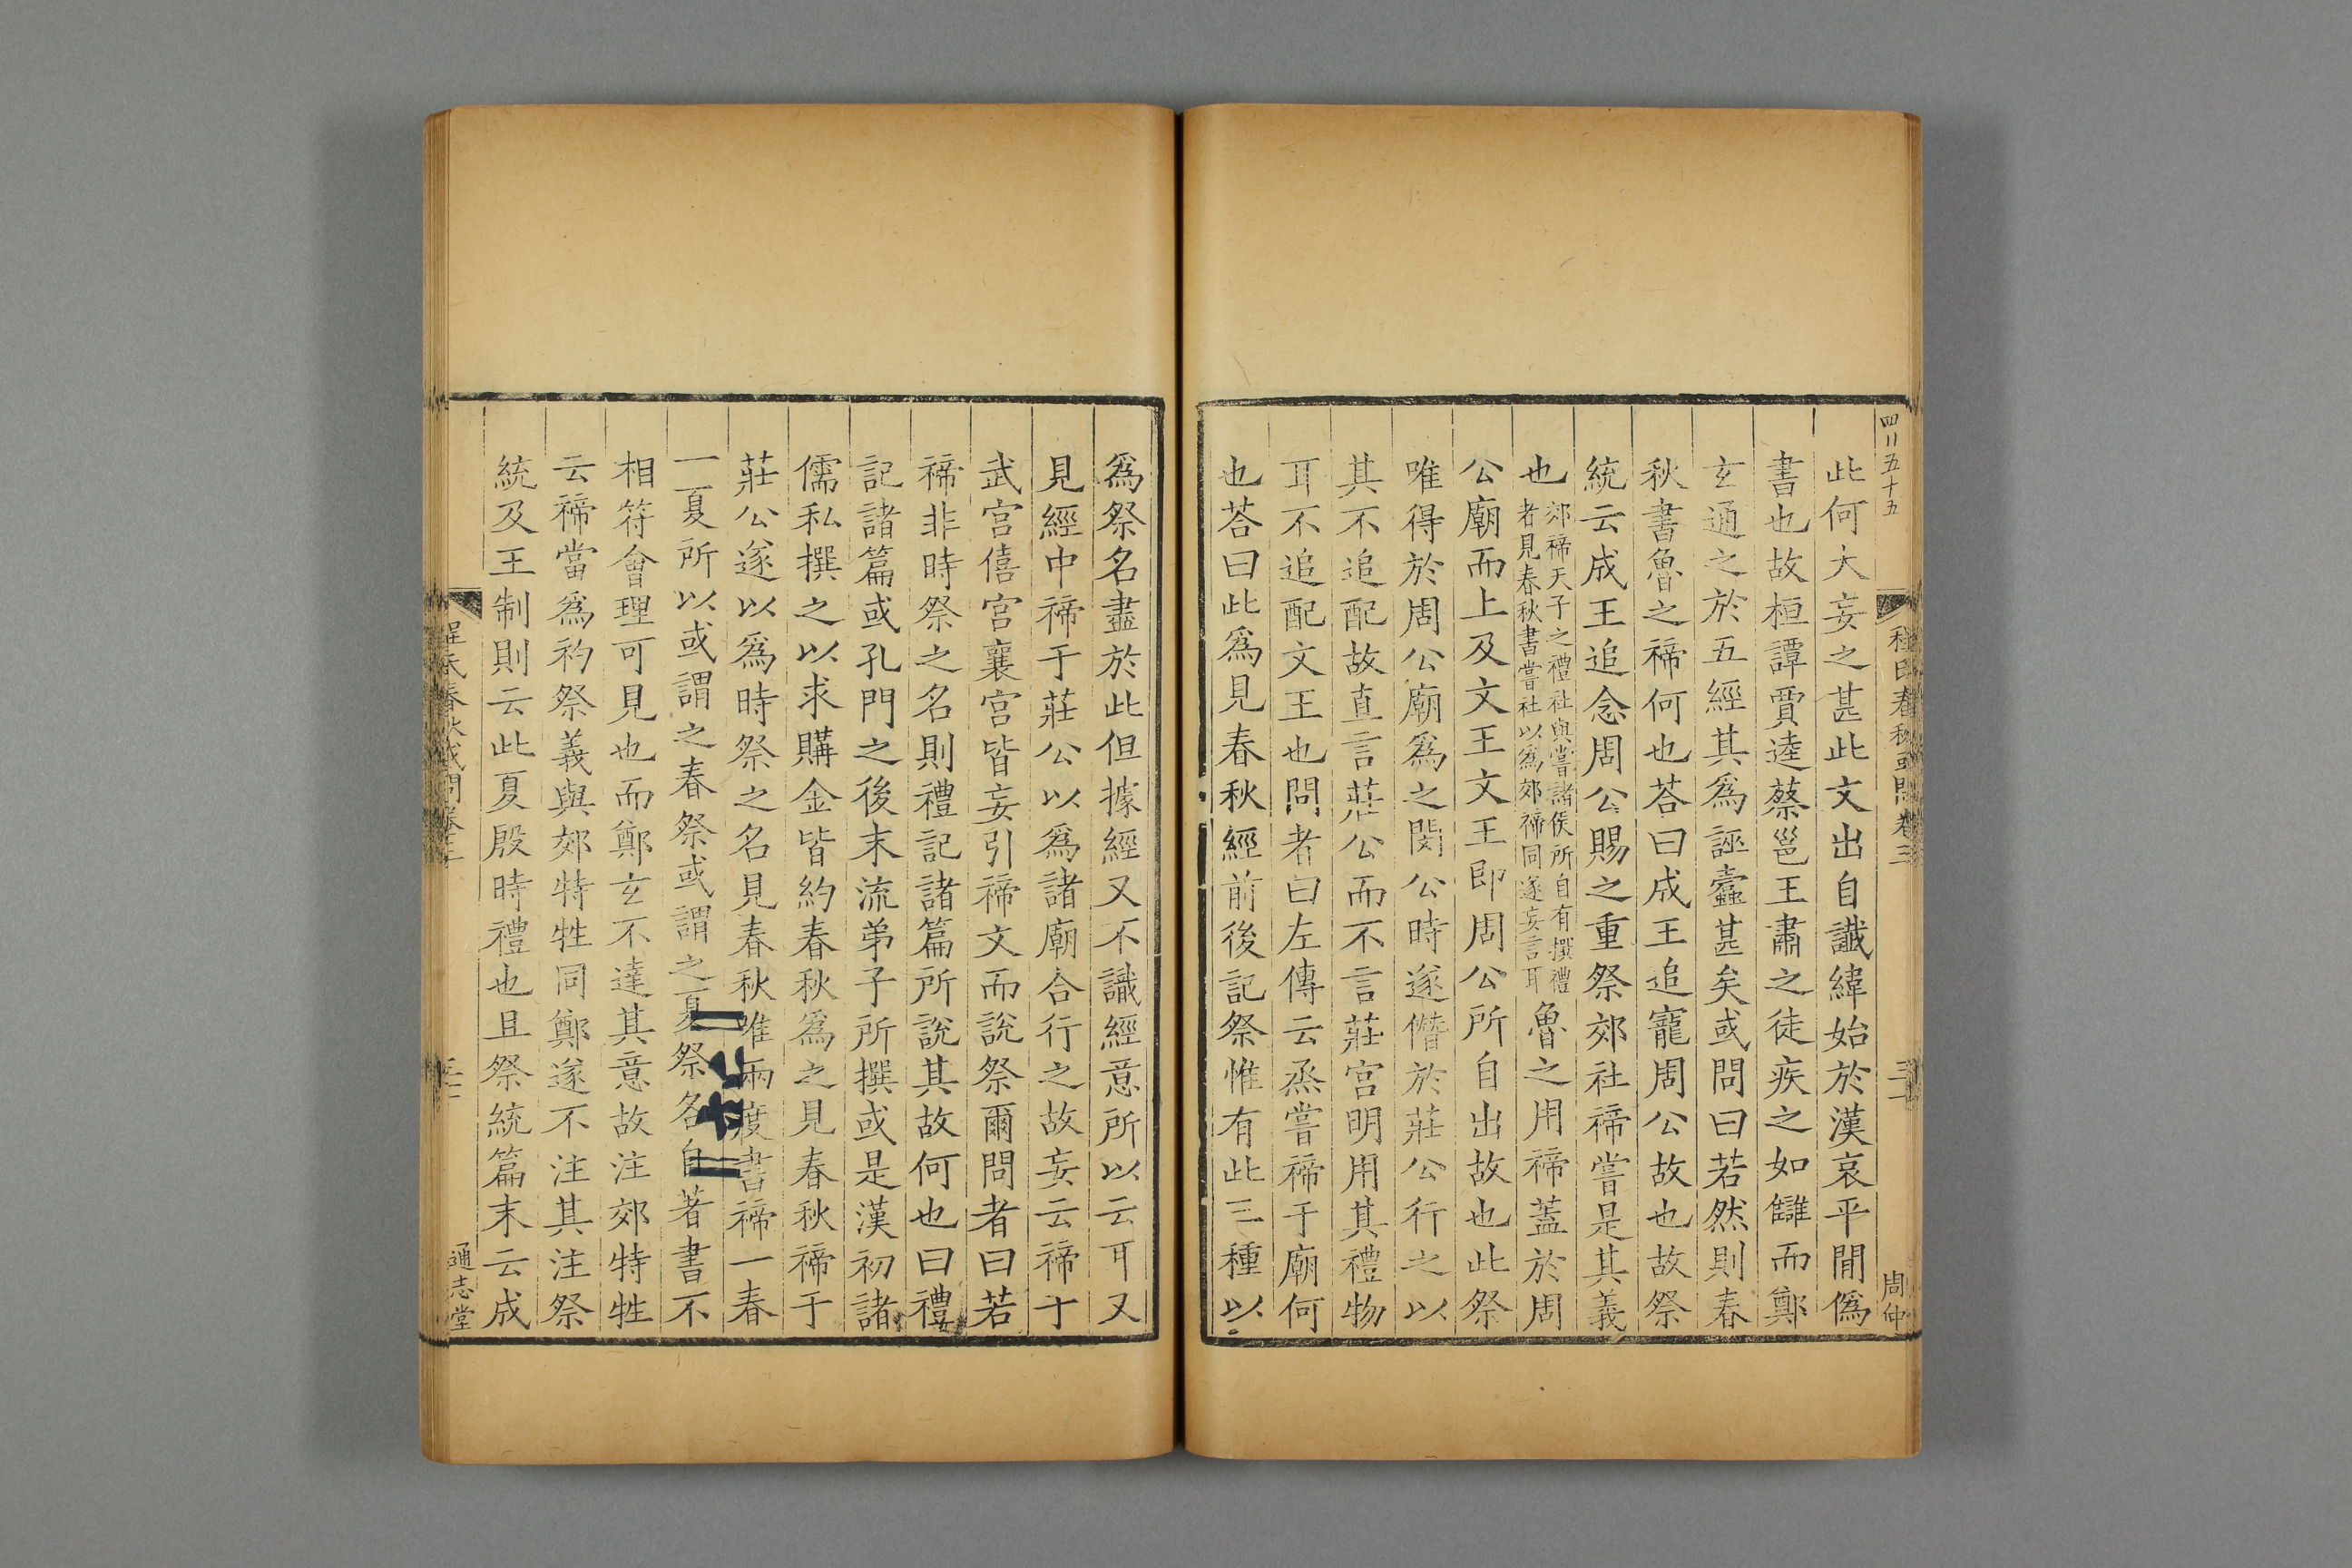 四〢五十五
程氏春秋或問卷三
周仲
此何大妄之甚此文出自讖緯始於漢哀平閒僞
書也故桓譚賈逵蔡邕王肅之徒疾之如讎而鄭
玄通之於五經其爲誣蠹甚矣或問曰若然則春
秋書魯之禘何也荅曰成王追寵周公故也故祭
統云成王追念周公賜之重祭郊社禘嘗是其義
也
郊禘天子之禮社與嘗諸侯所自有撰禮
者見春秋書嘗社以爲郊禘同遂妄言耳
魯之用禘蓋於周
公廟而上及文王文王即周公所自出故也此祭
唯得於周公廟爲之閔公時遂僭於莊公行之以
其不追配故直言莊公而不言莊宮明用其禮物
耳不追配文王也問者曰左傳云烝嘗禘于廟何
也荅曰此爲見春秋經前後記祭惟有此三種以
爲祭名盡於此但據經又不識經意所以云耳又
見經中禘于莊公以爲諸廟合行之故妄云禘于
武宮僖宮襄宮皆妄引禘文而說祭爾問者曰若
禘非時祭之名則禮記諸篇所說其故何也曰禮
記諸篇或孔門之後末流弟子所撰或是漢初諸
儒私撰之以求購金皆約春秋爲之見春秋禘于
莊公遂以爲時祭之名見春秋唯兩度書禘一春
一夏所以或謂之春祭或謂之夏祭名自著書不
相符會理可見也而鄭玄不達其意故注郊特牲
云禘當爲礿祭義與郊特牲同鄭遂不注其注祭
統及王制則云此夏殷時禮也且祭統篇末云成
程氏春秋或問卷三
通志堂